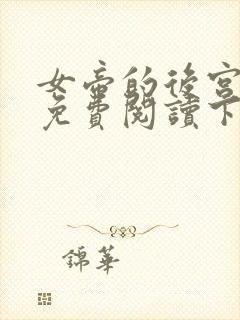 女帝的後宮
免費閱讀下
錦華